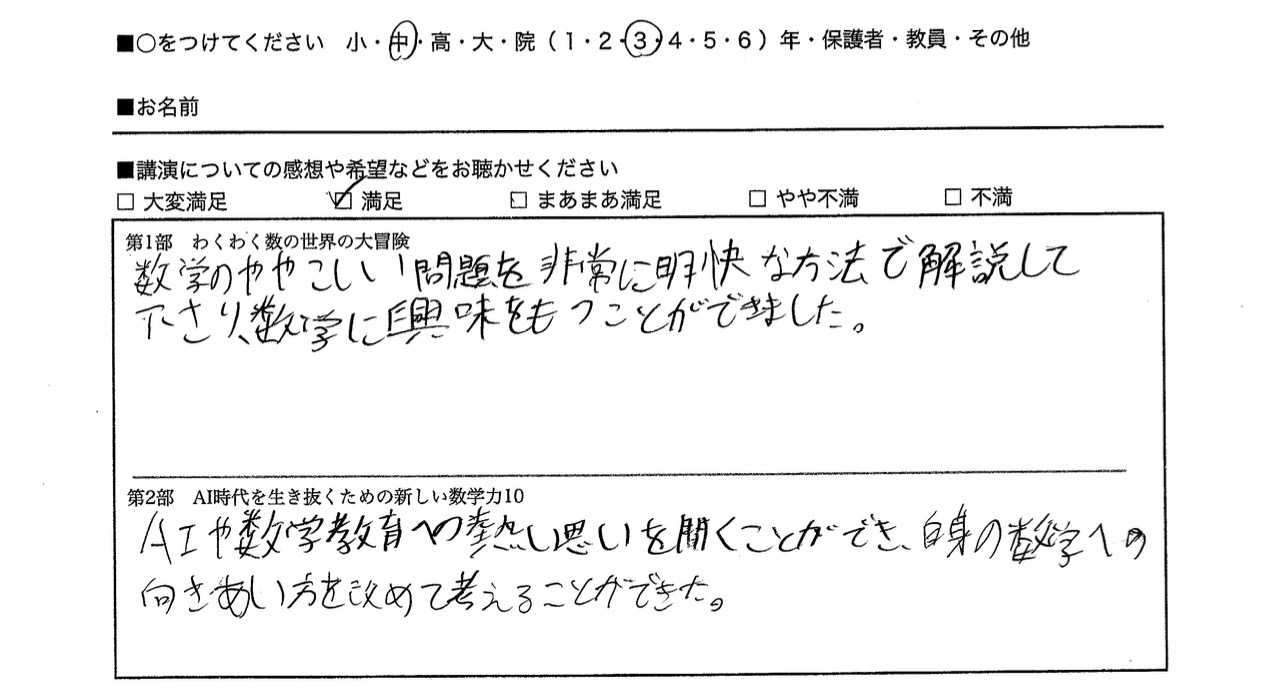 ■○をつけてください 小・中・高・大・院（1・2・3・4・5・6）年・保護者・教員・その他
■お名前
■講演についての感想や希望などをお聴かせください
□ 大変満足 ☑ 満足 □ まあまあ満足 □ やや不満 □ 不満
第1部 わくわく数の世界の大冒険
数学のややこしい問題を非常に明快な方法で解説して
下さり、数学に興味をもつことができました。
第2部 AI時代を生き抜くための新しい数学力10
AIや数学教育への熱い思いを聞くことができ、自身の数学への
向きあい方を改めて考えることができた。